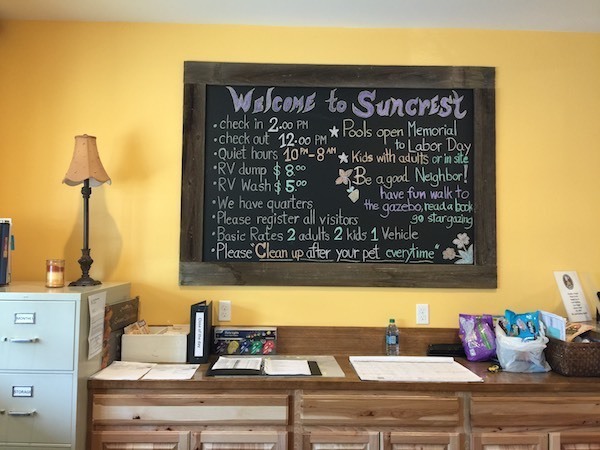 Welcome to Suncrest
• check in 2:00 PM
• check out 12:00 PM
• Quiet hours 10 PM - 8 AM
• RV dump $8.00
• RV Wash $5.00
• We have quarters
• Please register all visitors
• Basic Rates 2 adults 2 kids 1 Vehicle
• Please "Clean up after your pet everytime"
★ Pools open Memorial
to Labor Day
★ Kids with adults or in site
Be a good Neighbor!
have fun walk to
the gazebo, read a book
go stargazing
MONTHLY
STORAGE